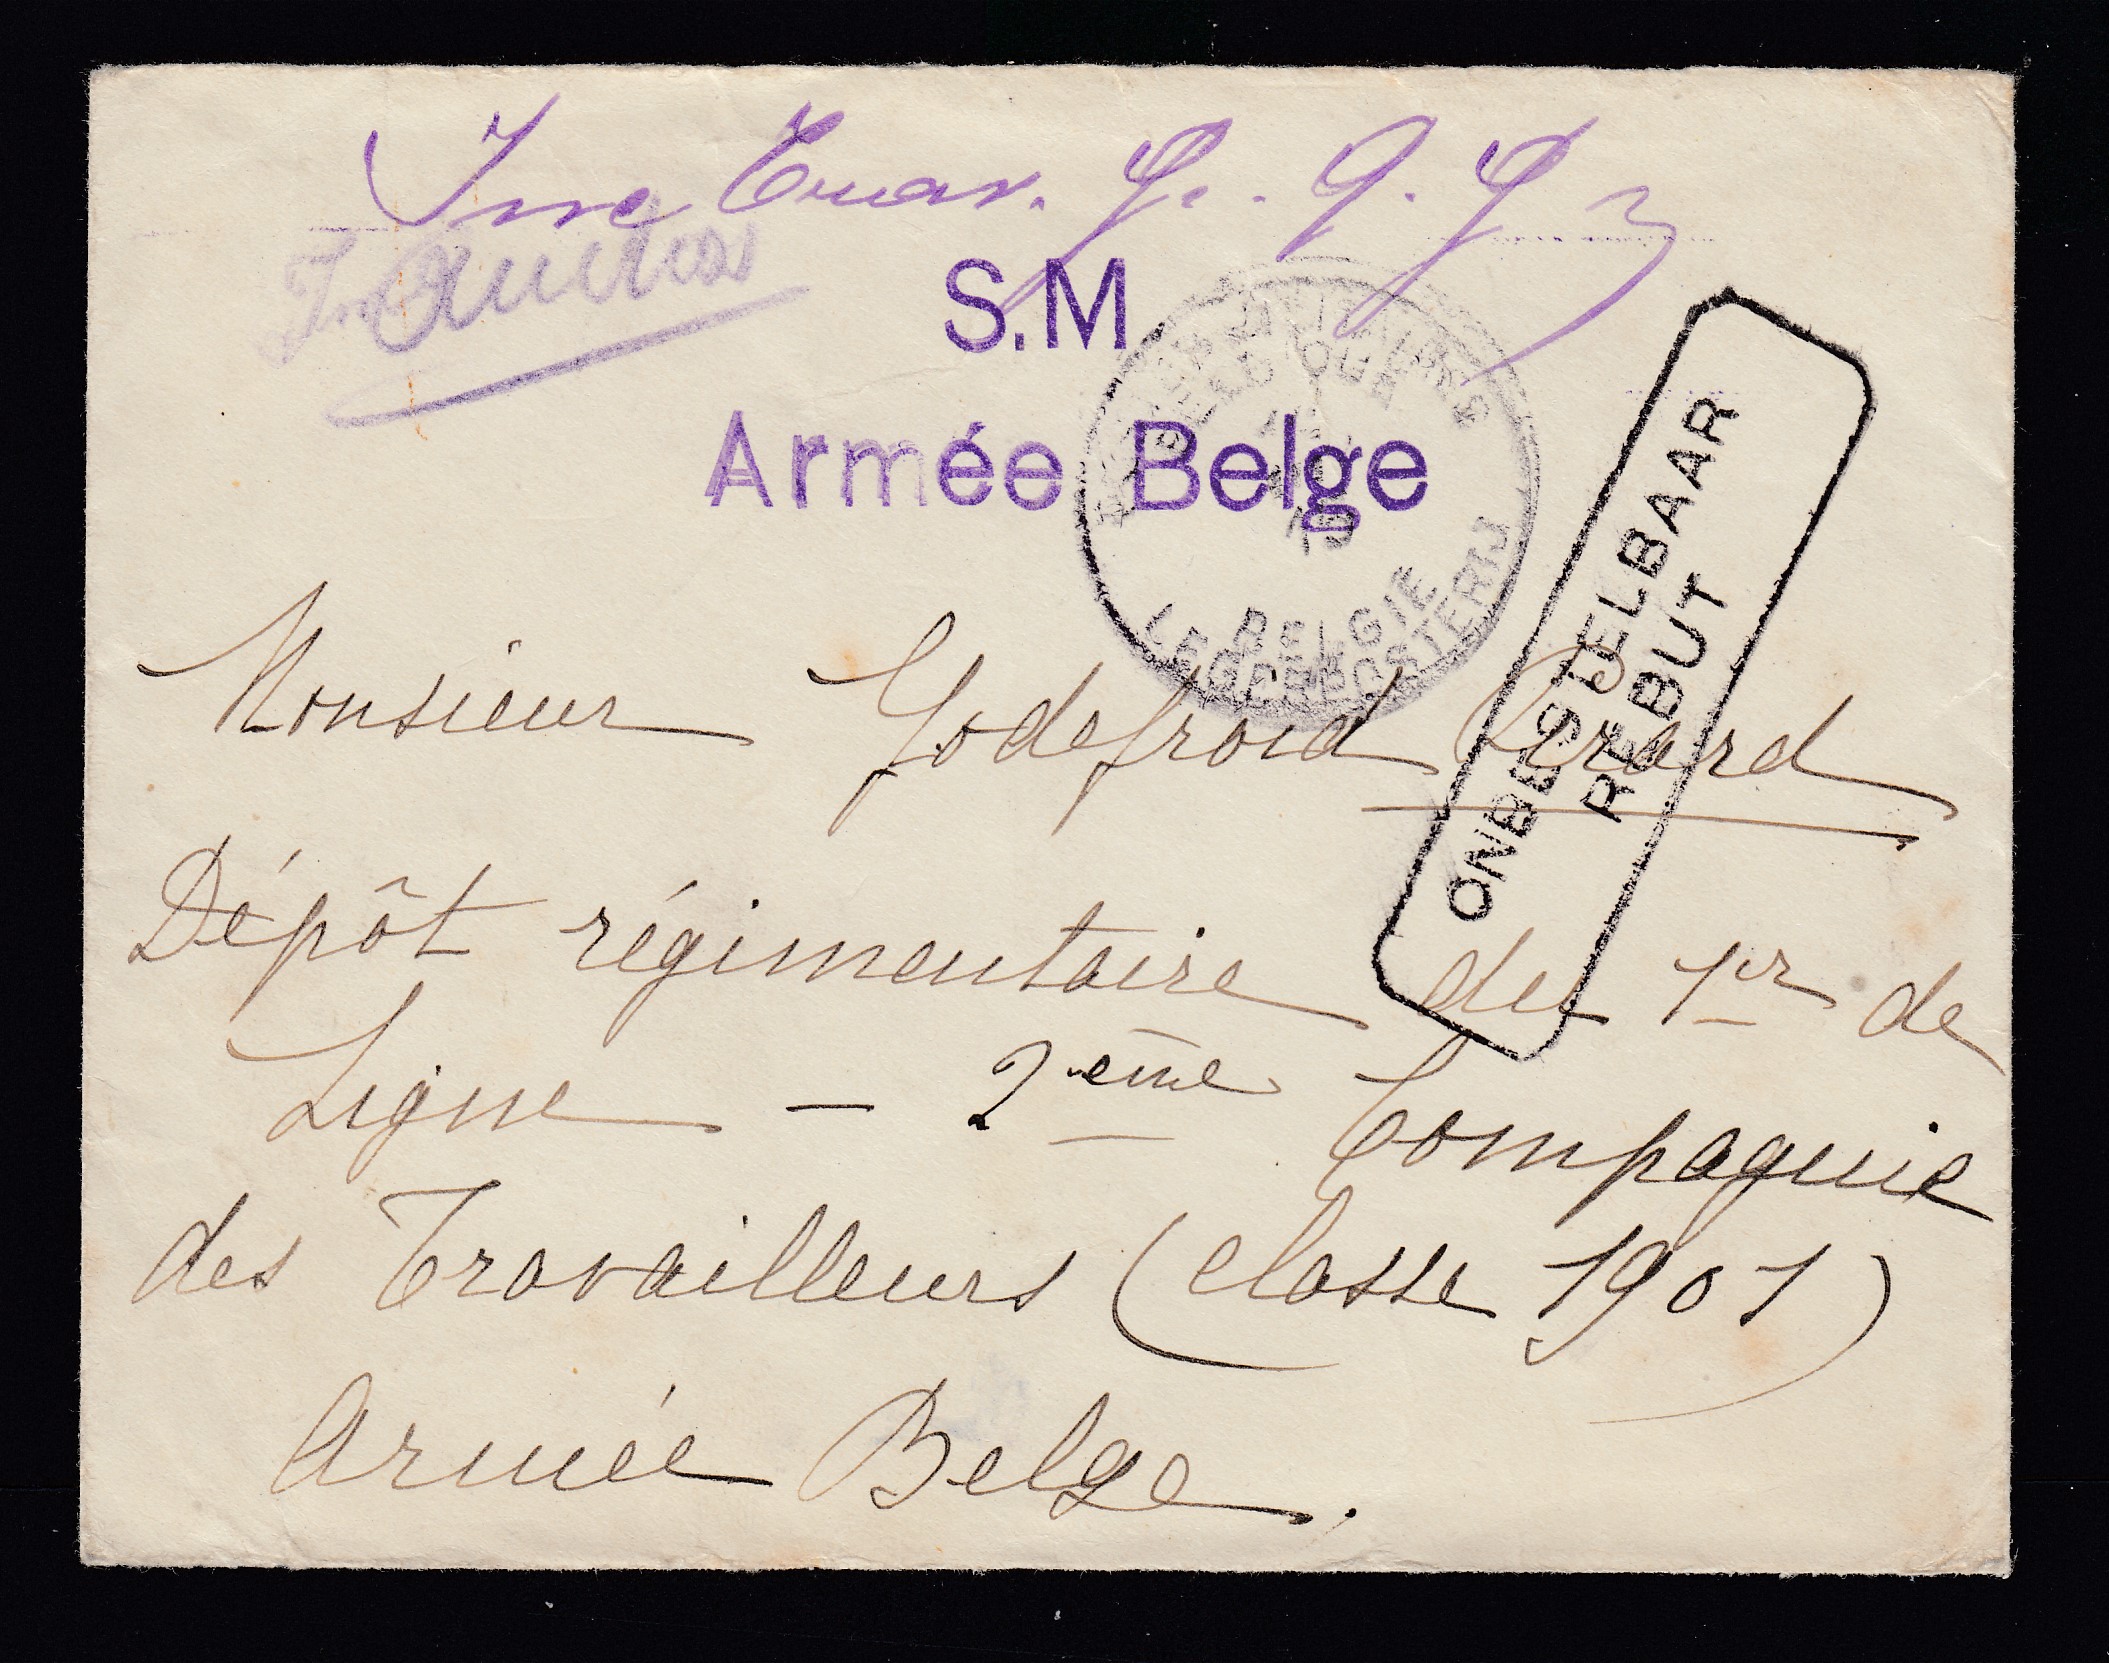 S.M
Armée Belge
BELGIQUE
BELGIE
LEGERPOSTERIJ
ONBESTELBAAR
REBUT
Monsieur Godefroid Girard
Dépôt régimentaire du 1er de
Ligne – 2ème Compagnie
des Travailleurs (classe 1901)
Armée Belge.